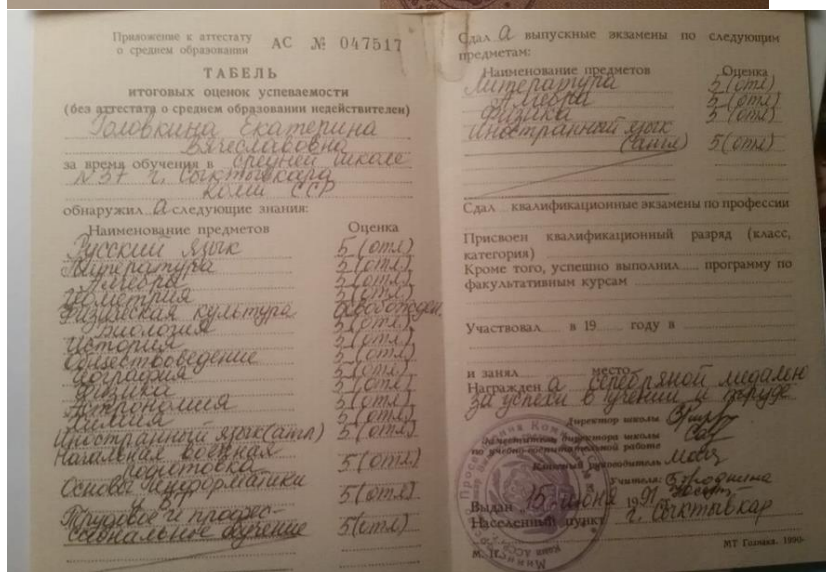 Приложение к аттестату
о среднем образовании АС № 047517
ТАБЕЛЬ
итоговых оценок успеваемости
(без аттестата о среднем образовании недействителен)
Головкина Екатерина
Вячеславовна
за время обучения в средней школе
№ 37 г. Сыктывкара
Коми ССР
обнаружила следующие знания:
Наименование предметов Оценка
Русский язык 5 (отл)
Литература 5 (отл)
Алгебра 5 (отл)
Геометрия 5 (отл)
Физическая культура освобожден
Биология 5 (отл)
История 5 (отл)
Обществоведение 5 (отл)
География 5 (отл)
Физика 5 (отл)
Астрономия 5 (отл)
Химия 5 (отл)
Иностранный язык (англ) 5 (отл)
Начальная военная
подготовка 5 (отл)
Основы информатики
и ВТ 5 (отл)
Трудовое и профес-
сиональное обучение 5 (отл)
Сдал а выпускные экзамены по следующим
предметам:
Наименование предметов Оценка
Литература 5 (отл)
Алгебра 5 (отл)
Физика 5 (отл)
Иностранный язык
(англ) 5 (отл)
Сдал квалификационные экзамены по профессии
Присвоен квалификационный разряд (класс,
категория)
Кроме того, успешно выполнил программу по
факультативным курсам
Участвовал в 19 году в
и занял место
Награжден а серебряной медалью
за успехи в учении и труде
Директор школы
Заместитель директора школы
по учебно-воспитательной работе
Классный руководитель
Учителя:
Выдан 15 июня 1991
Населенный пункт г. Сыктывкар
М. П.
МТ Гознака. 1990.